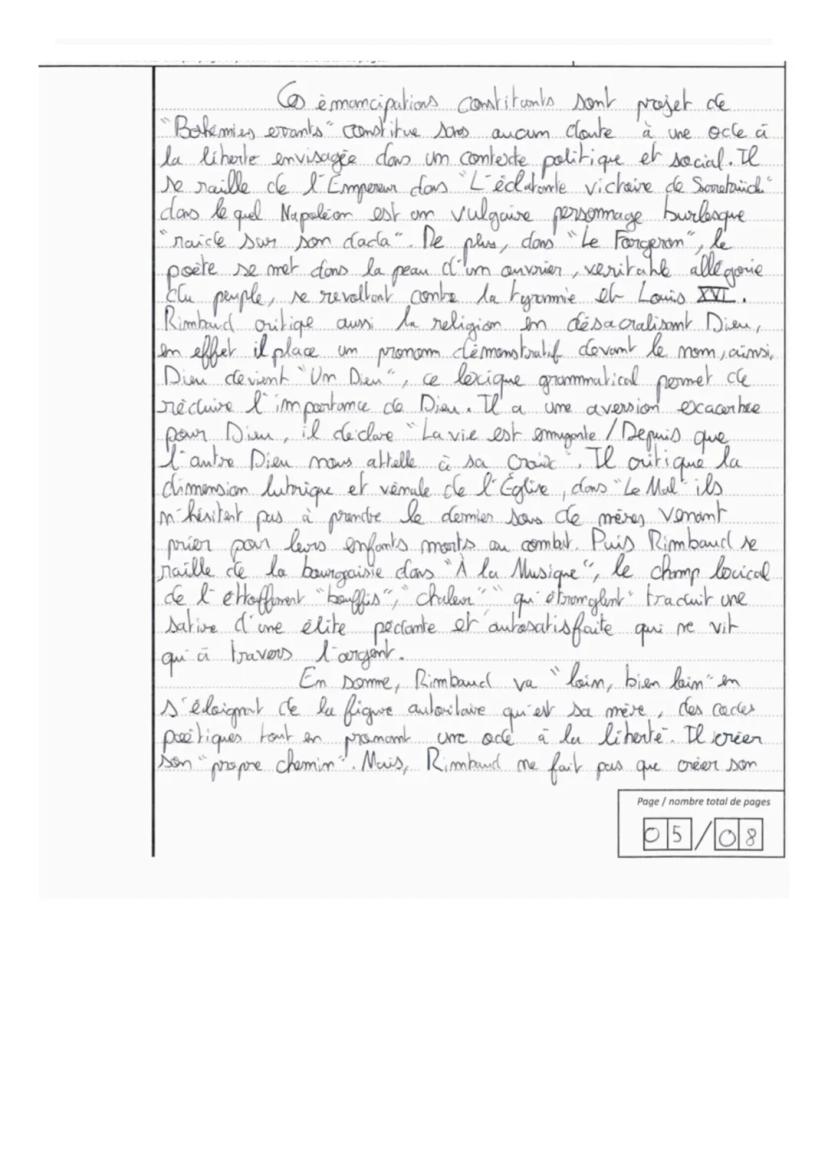 Ces émancipations constituants sont projet de
"Bohémiens errants" constitue sans aucun doute à une ode à
la liberté envisagée dans un contexte politique et social. Il
se raille de l'Empereur dans "L'éclatante victoire de Sarrebrück"
dans lequel Napoléon est un vulgaire personnage burlesque
"raide sur son dada". De plus, dans "Le Forgeron", le
poète se met dans la peau d'un ouvrier, veritable allégorie
du peuple, se revoltant contre la tyrannie et Louis XVI.
Rimbaud critique aussi la religion en désacralisant Dieu,
en effet il place un pronom démonstratif devant le nom, ainsi,
Dieu devient "Un Dieu", ce lexique grammatical permet de
réduire l'importance de Dieu. Il a une aversion exacerbée
pour Dieu, il déclare "La vie est / Depuis que
l'autre Dieu nous attelle à sa croix". Il critique la
dimension lubrique et vénale de l'Église, dans "Le Mal" ils
n'hésitent pas à prendre le dernier sous de mères venant
prier pour leurs enfants morts au combat. Puis Rimbaud se
raille de la bourgoisie dans "À la Musique", le champ lexical
de l'étouffement "bouffis", "chaleur" "qu'étranglent" traduit une
satire d'une élite pédante et autosatisfaite qui ne vit
qu'à travers l'argent.
En somme, Rimbaud va "loin, bien loin" en
s'éloignat de la figure autoritaire qu'est sa mère, des codes
poétiques tout en pronant une ode à la liberté. Il créer
son "propre chemin". Mais, Rimbaud ne fait pas que créer son
Page / nombre total de pages
05/08